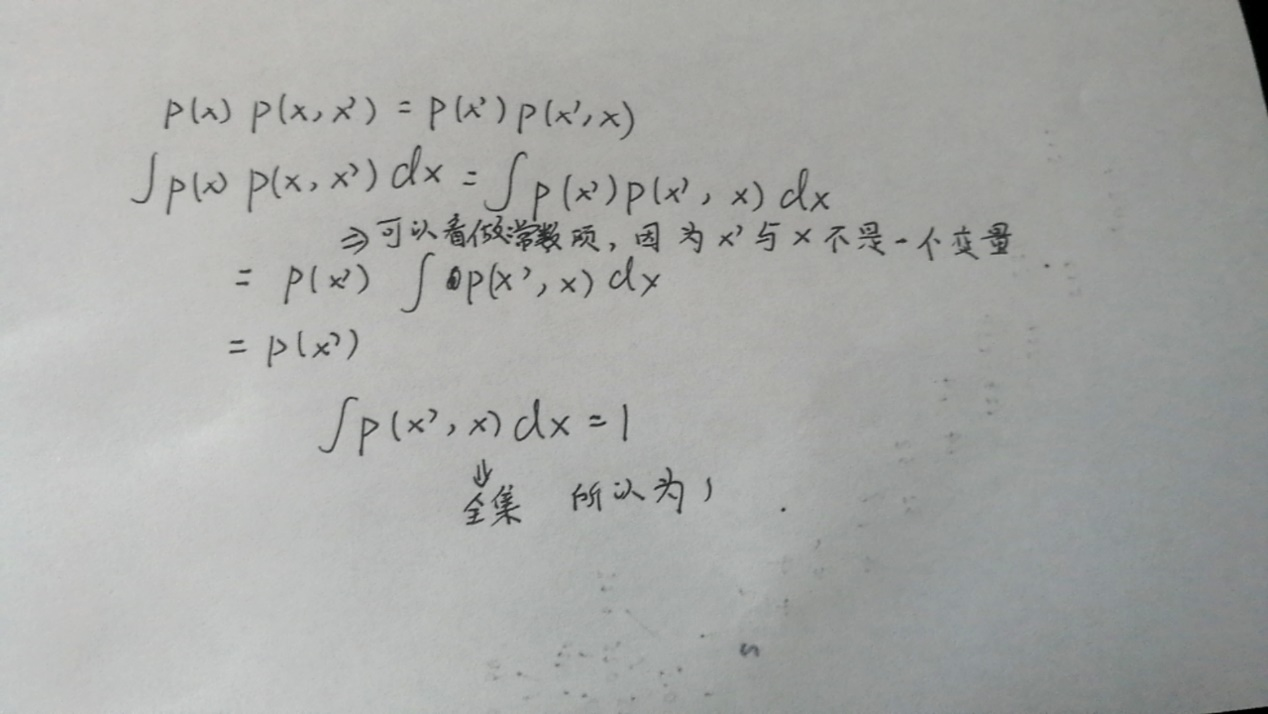 p(x) p(x, x') = p(x') p(x', x)
∫ p(x) p(x, x') dx = ∫ p(x') p(x', x) dx
⇒ 可以看做常数项, 因为 x' 与 x 不是一个变量.
= p(x') ∫ p(x', x) dx
= p(x')
∫ p(x', x) dx = 1
⇓
全集 所以为 1 .